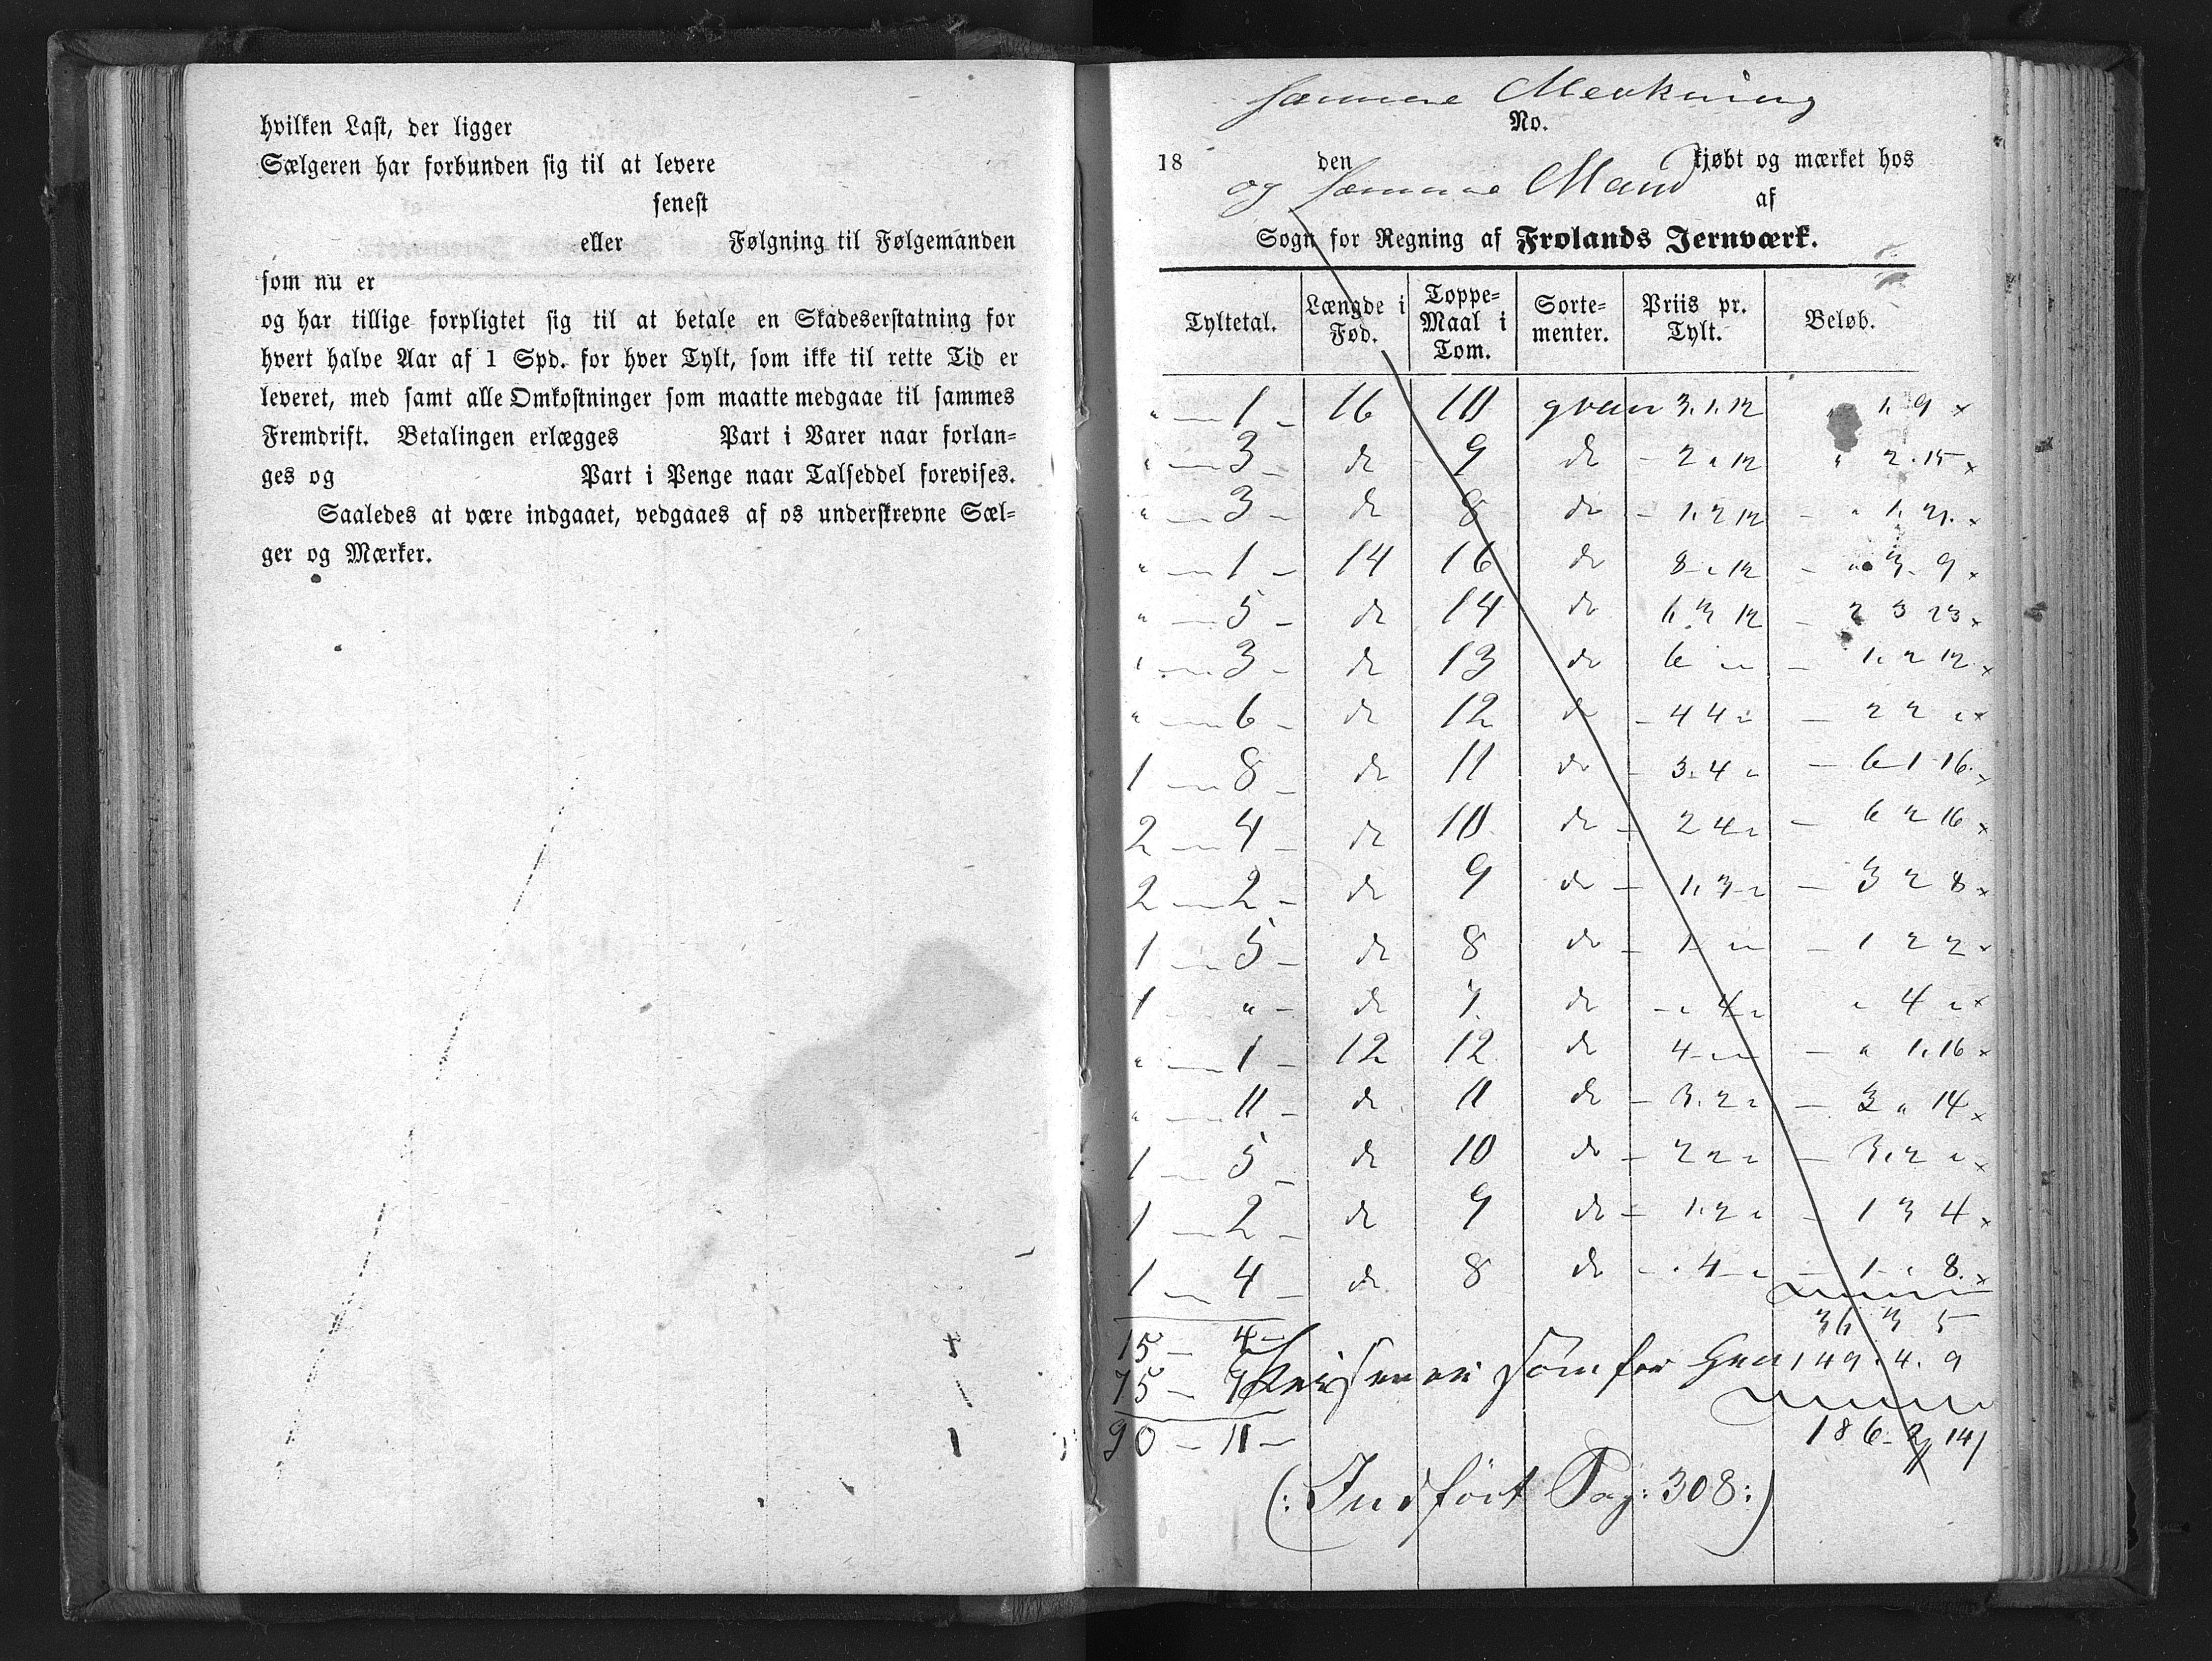 hvilken Last, der ligger
Sælgeren har forbunden sig til at levere
senest
eller Følgning til Følgemanden
som nu er
og har tillige forpligtet sig til at betale en Skadeserstatning for
hvert halve Aar af 1 Spd. for hver Tylt, som ikke til rette Tid er
leveret, med samt alle Omkostninger som maatte medgaae til sammes
Fremdrift. Betalingen erlægges Part i Varer naar forlan=
ges og Part i Penge naar Talseddel forevises.
Saaledes at være indgaaet, vedgaaes af os underskrevne Sæl=
ger og Mærker.
samme Merkning
No.
18 den kjøbt og mærket hos
og samme Mand af
Sogn for Regning af Frolands Jernværk.
Tyltetal. Længde i Fod. Toppe=Maal i Tom. Sorte=menter. Priis pr. Tylt. Beløb.
" — 1 — 16 10 gran 3. 1. 12 " 1. 9 x
" — 3 — do 9 do — 2 " 12 " 2. 15 x
" — 3 — do 8 do — 1. 2 12 — " 1. 21. x
" — 1 — 14 16 do 8 " 12 — " 3. 9 x
" — 5 — do 14 do 6 3 12 — 2 3 23 x
" — 3 — do 13 do 6 " " — 1. 2 12 x
" — 6 — do 12 do — 4 4 " — 2 2 " x
1 — 8 — do 11 do — 3. 4 " — 6 1 16. x
2 — 4 — do 10 do — 2 4 " — 6 2 16 x
2 — 2 — do 9 do — 1. 3 " — 3 2 8 x
1 — 5 — do 8 do — 1 " " — 1 2 2 x
1 " — do 7 do — " 4 " " 4 " x
" — 1 — 12 12 do 4 " " — " 1. 16 x
" — 11 — do 11 do — 3. 2 " — 3 " 14 x
1 — 5 — do 10 do — 2 2 " — 3. 2 " x
1 — 2 — do 9 do — 1. 2 " — 1 3 4 x
1 — 4 — do 8 do — " 4 " — 1 " 8. x
36 3 5
15 — 4 —
75 — 7 Priserne som før 149. 4. 9
90 — 11 — 186 — 2 14
(: Indført Pag: 308 :)